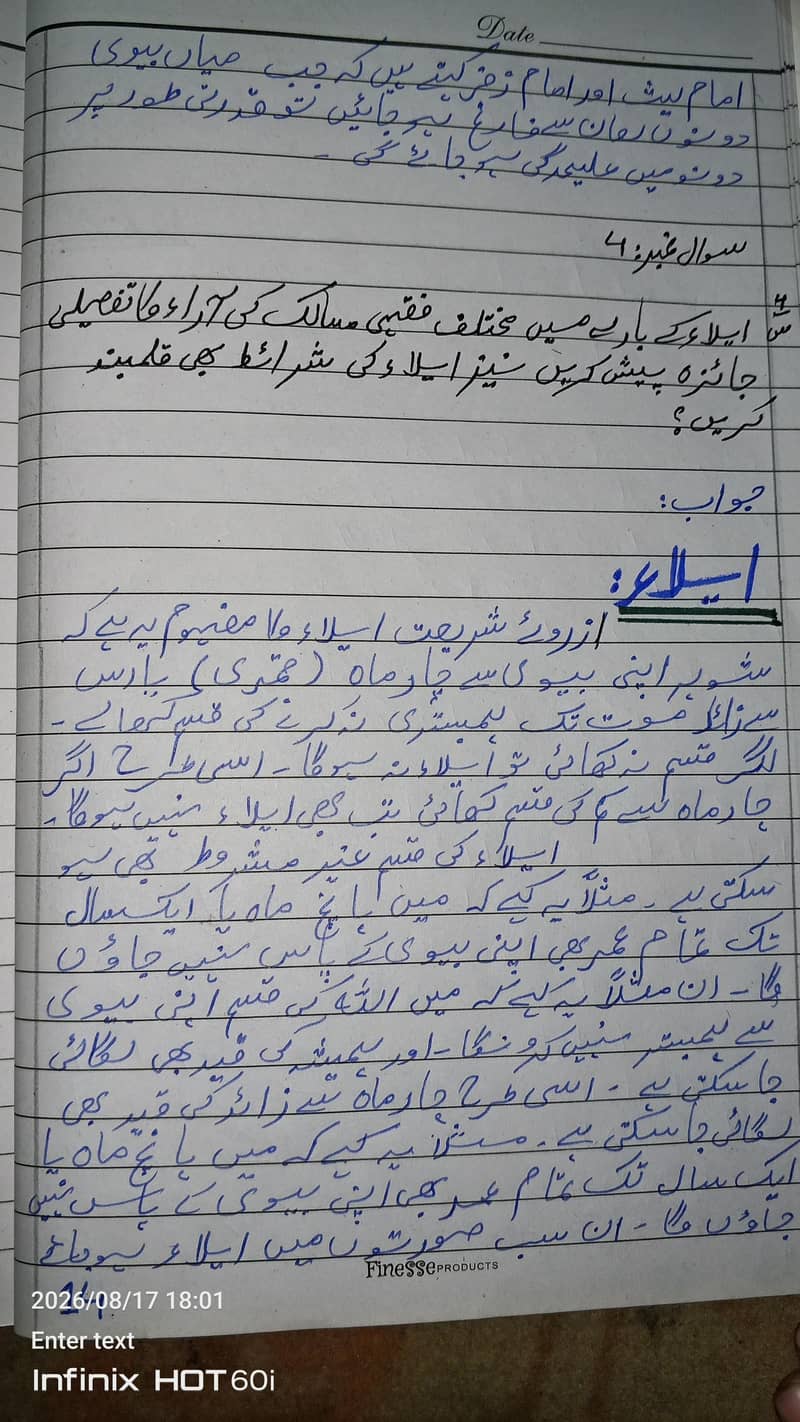 Date
امام لیث اور امام زفر کہتے ہیں کہ جب میاں بیوی
دونوں لعان سے فارغ ہو جائیں تو قدرتی طور پر
دونو میں علیحدگی ہو جائے گی ۔
سوال نمبر: 4
س4 ایلاء کے بارے میں مختلف فقہی مسالک کی آراء کا تفصیلی
جائزہ پیش کریں نیز ایلاء کی شرائط بھی قلمبند
کریں؟
جواب:
ایلاء:
ازروئے شریعت ایلاء کا مفہوم یہ ہے کہ
شوہر اپنی بیوی سے چار ماہ (قمری) یا اس
سے زائد مدت تک ہمبستری نہ کرنے کی قسم کھا لے ۔
اگر قسم نہ کھائی تو ایلاء نہ ہوگا ۔ اسی طرح اگر
چار ماہ سے کم کی قسم کھائی تب بھی ایلاء نہیں ہوگا ۔
ایلاء کی قسم غیر مشروط بھی ہو
سکتی ہے ۔ مثلاً یہ کہے کہ میں پانچ ماہ یا ایک سال
تک تمام عمر بھی اپنی بیوی کے پاس نہیں جاؤں
گا ۔ ان مثلاً یہ کہے کہ میں اللہ کی قسم اپنی بیوی
سے ہمبستر نہیں کرونگا ۔ اور ہمیشہ کی قید بھی لگائی
جا سکتی ہے ۔ اسی طرح چار ماہ سے زائد کی قید بھی
لگائی جا سکتی ہے ۔ مثلاً یہ کہے کہ میں پانچ ماہ یا
ایک سال تک تمام عمر بھی اپنی بیوی کے پاس نہیں
جاؤں گا ۔ ان سب صورتوں میں ایلاء ہو جائے
Finesse PRODUCTS
2026/08/17 18:01
Enter text
Infinix HOT 60i